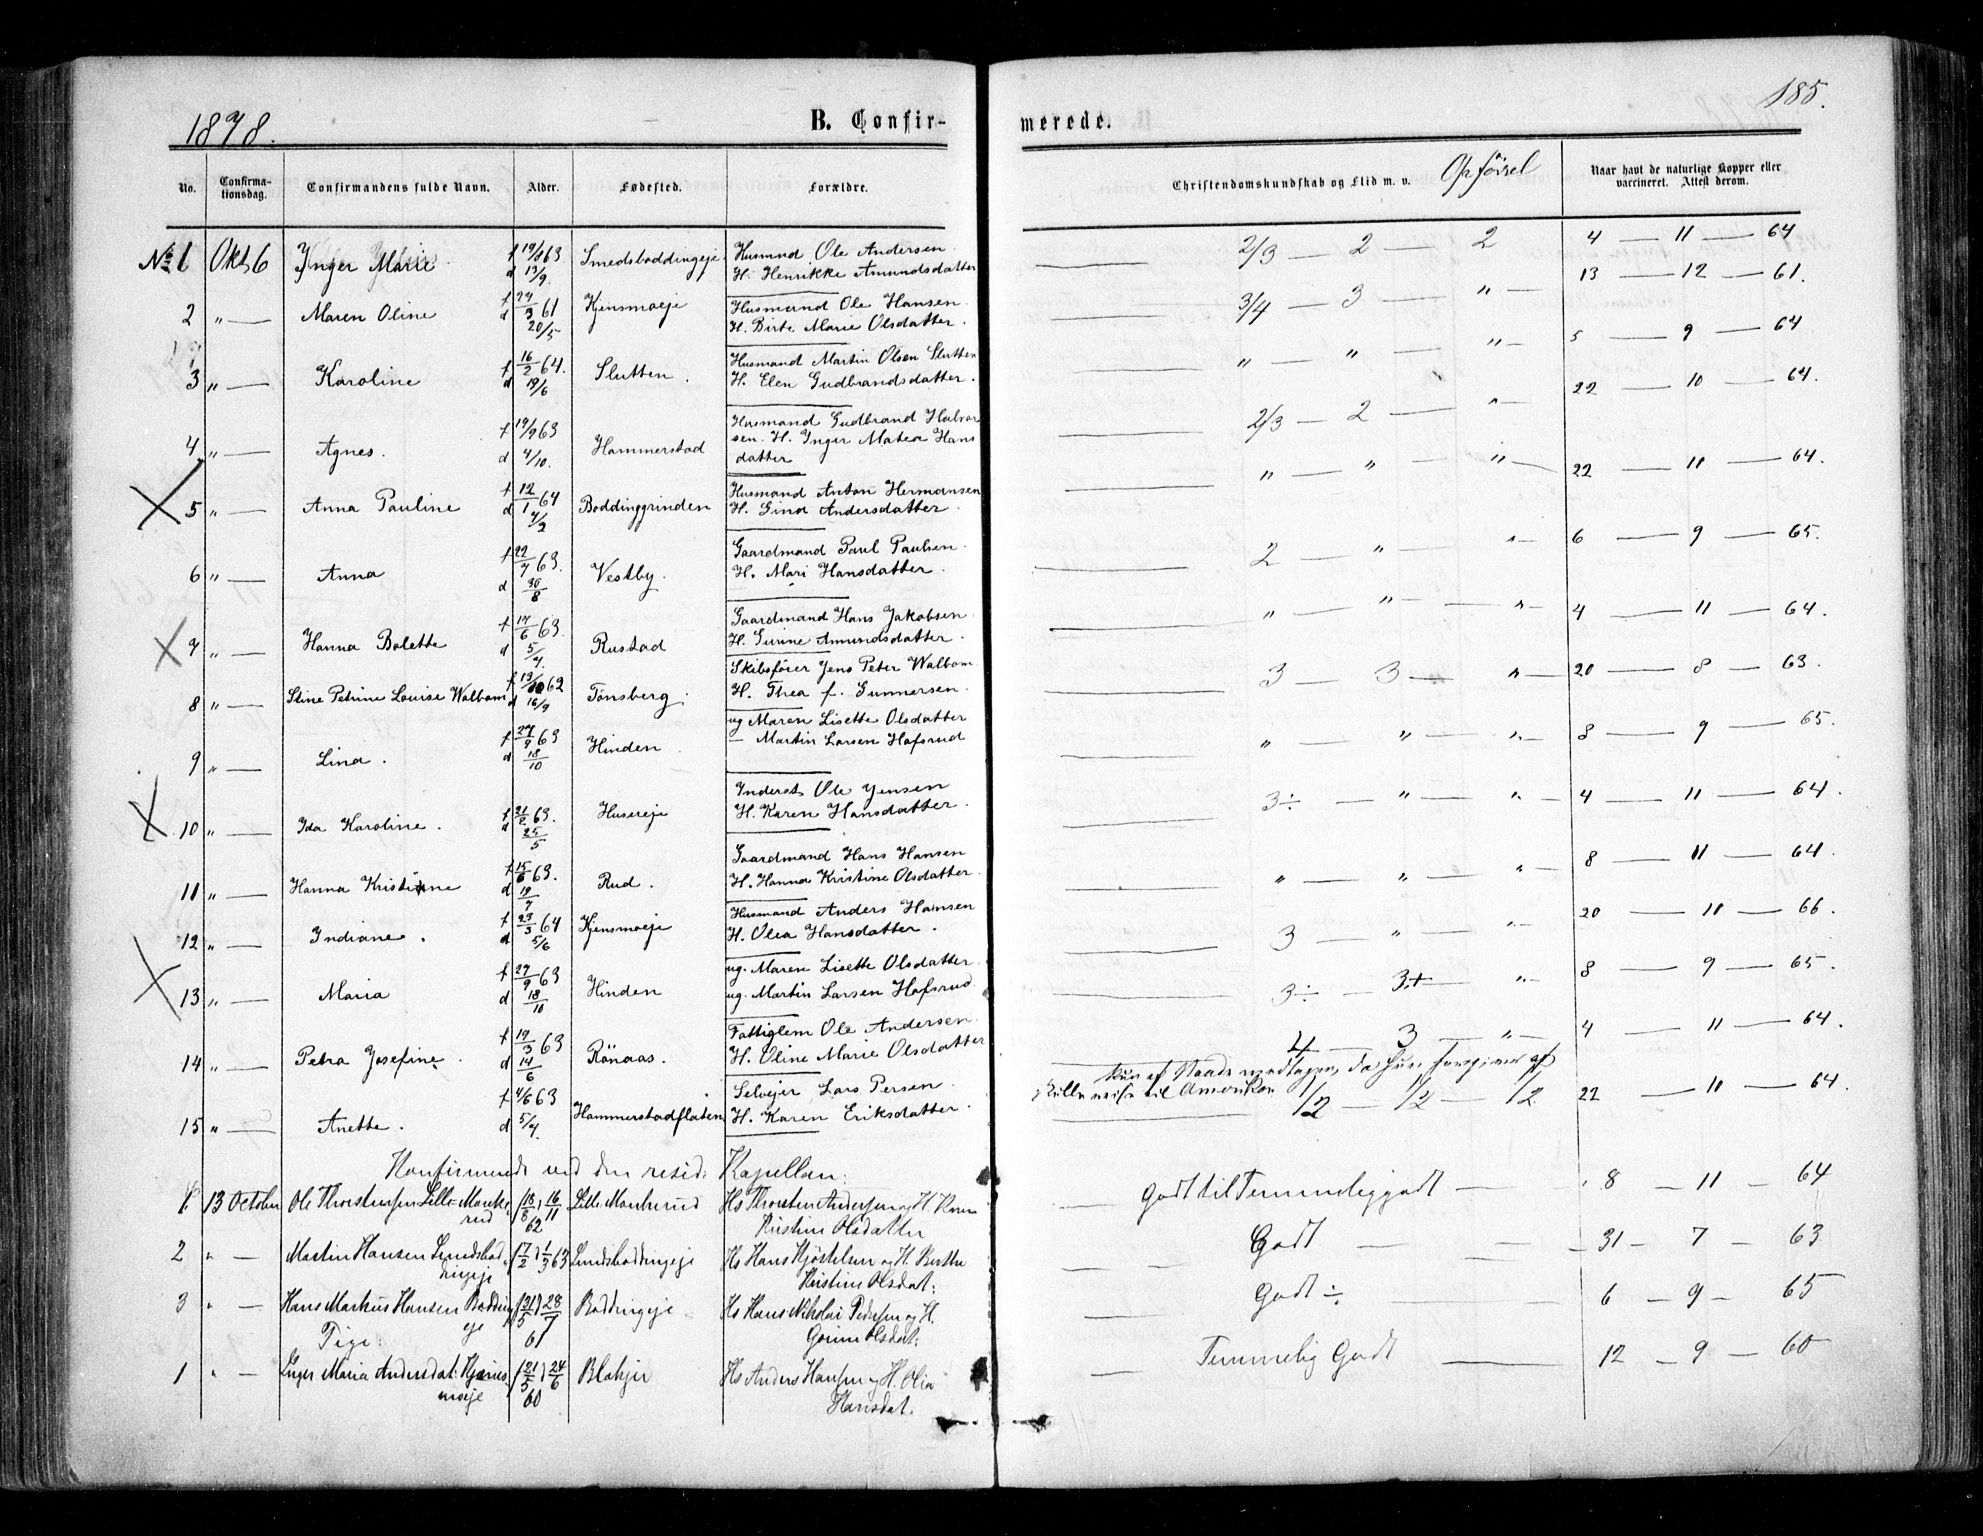 1878.
B. Confir-
merede.
185.
No.
Confirma-
tionsdag.
Confirmandens fulde Navn.
Alder.
Fødested.
Forældre.
Christendomskundskab og Flid m. v.
Opförsel
Naar havt de naturlige Kopper eller
vaccineret. Attest derom.
No 1 Okt 6 Inger Marie f 19/8 63 d 13/9 Smedsboddingeje Husmand Ole Andersen. H. Henrikke Amundsdatter 2/3 — 2 — 2 4 — 11 — 64
2 " — Maren Oline f 27/3 61 d 20/5 Kjensmoeje Husmand Ole Hansen. H. Birte Marie Olsdatter. 3/4 — 3 — " — 13 — 12 — 61.
3 " — Karoline f 16/2 64. d 19/6 Slutten. Husmand Martin Olsen Slutten H. Elen Gudbrandsdatter. " — " — " — 5 — 9 — 64
4 " — Agnes. f 19/9 63 d 4/10. Hammerstad Husmand Gudbrand Halvor sen. H. Inger Matea Hans datter 2/3 — 2 — " — 22 — 10 — 64.
5 " — Anna Pauline f 12/1 64 d 4/2 Boddinggrinden Husmand Anton Hermansen H. Gina Andersdatter. " — " — " — 22 — 11 — 64.
6 " — Anna f 22/7 63. d 30/8 Vestby. Gaardmand Paul Paulsen. H. Mari Hansdatter. 2 — " — " — 6 — 9 — 65.
7 " — Hanna Bolette f 17/6 63. d 5/7. Rustad Gaardmand Hans Jakobsen. H. Gurine Amundsdatter. " — " — " — 4 — 11 — 64.
8 " — Stine Petrine Louise Walbom f 13/10 62 d 16/9 Tønsberg. Skibsfører Jens Peter Walbom H. Thea f. Gunnersen. 3 — 3 — " — 20 — 8 — 63.
9 " — Lina. f 27/9 63 d 18/10 Hinden. ug Maren Lisette Olsdatter — Martin Larsen Hafsrud " — " — " — 8 — 9 — 65.
10 " — Ida Karoline. f 21/2 63. d 25/5 Husereje Inderst Ole Jensen H. Karen Hansdatter. 3÷ — " — " — 4 — 11 — 64.
11 " — Hanna Kristiane f 15/6 63. d 19/7 Rud. Gaardmand Hans Hansen H. Hanna Kristine Olsdatter. " — " — " — 8 — 11 — 64.
12 " — Indiane. f 23/3 64 d 5/6 Kjensmoeje Husmand Anders Hansen H. Olea Hansdatter. 3 — " — " — 20 — 11 — 66.
13 " — Maria f 27/9 63 d 18/10 Hinden ug. Maren Lisette Olsdatter. ug. Martin Larsen Hafsrud 3÷ — 3+ — " — 8 — 9 — 65.
14 " — Petra Josefine. f 19/3 63 d 14/6 Rönaas. Fattiglem Ole Andersen. H. Oline Marie Olsdatter 4 — 3 — " — 4 — 11 — 64.
Kun af Naade modtagen, da hun
skulle reise til Amerika
15 " — Anette. f 4/6 63 d 5/7. Hammerstadflaten Selvejer Lars Persen. H. Karen Eriksdatter. 1/2 — 1/2 — 1/2 22 — 11 — 64.
Konfirmerede ved den resid: Kapellan:
1. 13 October Ole Thorstensen Lille Manke- rud f 18/8 d 16/11 62 Lille Mankerud Hs Thorsten Andersen og H. Karen Kristine Olsdatter Godt til Temmeliggodt — 8 — 11 — 64
2 " — Martin Hansen Smedsbod- dingeje f 7/2 d 1/3 63 Smedsboddingeje Hs Hans Hjöstelsen og H. Berthe Kristine Olsdat: Godt — 31 — 7 — 63
3 " — Hans Markus Hansen Bodding eje f 21/5 d 28/7 61 Boddingeje Hs Hans Nikolai Pedersen og H. Gorine Olsdat: Godt ÷ — 6 — 9 — 65
Pige:
1 " — Inger Maria Andersdat: Kjens moeje f 21/5 d 24/6 60 Blakjer Hs Anders Hansen og H. Olia Hansdat. Temmelig Godt — 12 — 9 — 60